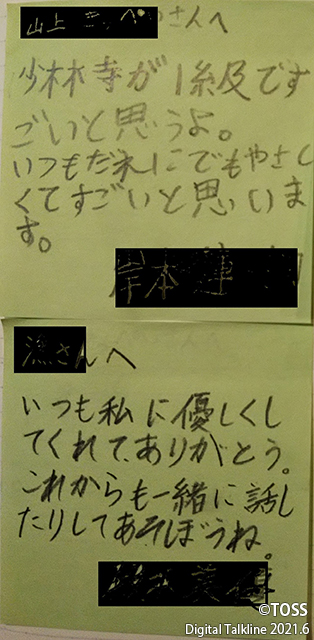 さんへ
少林寺が1級です
ごいと思うよ。
いつもだれにでもやさし
くてすごいと思いま
す。
さんへ
いつも私に優しくし
てくれて、ありがとう。
これからも一緒に話し
たりしてあそぼうね。
©TOSS
Digital Talkline 2021.6